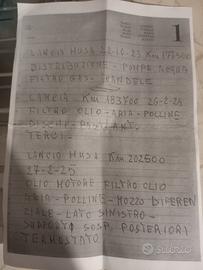 1
LANCIA MUSA 22-10-23 KM 177500
DISTRIBUZIONE - POMPA ACQUA
FILTRO GAS - CANDELE
LANCIA KM 183700 26-2-24
FILTRO OLIO - ARIA - POLLINE
DISCHI - PAST. ANT.
TERGI -
LANCIA MUSA KM 202500
27-2-25
OLIO MOTORE FILTRO OLIO
ARIA - POLLINE - MOZZO DIFEREN
ZIALE - LATO SINISTRO -
SUPPORTO SOSP. POSTERIORI
TERMOSTATO
subito